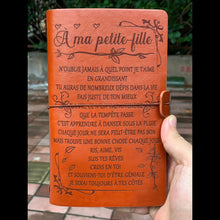 À ma petite-fille
N'OUBLIE JAMAIS À QUEL POINT JE T'AIME
EN GRANDISSANT
TU AURAS DE NOMBREUX DÉFIS DANS LA VIE
FAIS JUSTE DE TON MIEUX
QUE LA TEMPÊTE PASSE
C'EST APPRENDRE À DANSER SOUS LA PLUIE
CHAQUE JOUR NE SERA PEUT-ÊTRE PAS BON
MAIS TROUVE UNE CHOSE CHAQUE JOUR
RIS, AIME, VIS
SUIS TES RÊVES
CROIS EN TOI
ET SOUVIENS-TOI D'ÊTRE GÉNIALE
JE SERAI TOUJOURS À TES CÔTÉS